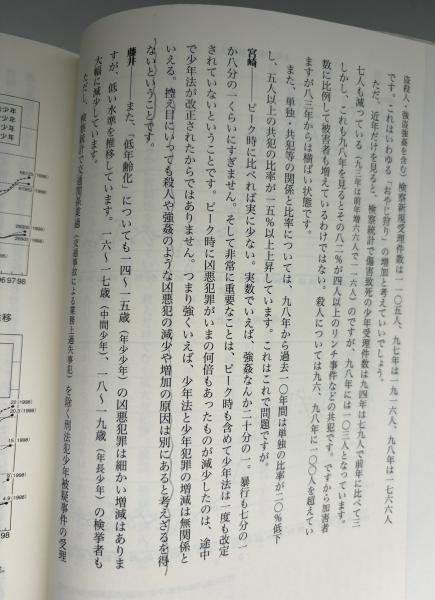 盗殺人・強盗強姦を含む）検察新規受理件数は一一〇五人、九七年は一九一六人、九八年は一七六六人
です。これはいわゆる「おやじ狩り」の増加と考えていいでしょう。
ただ、近年だけを見ると、検察統計で傷害致死の少年受理件数は九四年は七九人で前年に比べて三
七人も減っている（九三年は前年増六六人で一一六人）のですが、九八年には一〇三人となっています。
しかし、これも九八年を見るとその八二％が四人以上のリンチ事件などの共犯です。ですから加害者
数に比例して被害者も増えているわけではない。殺人については九六、九八年に一〇〇人を超えてい
ますが八三年からは横ばい状態です。
また、単独・共犯等の関係と比率については、九八年から過去一〇年間は単独の比率が二〇％低下
し、五人以上の共犯の比率が一五％以上上昇しています。これはこれで問題ですが。
宮崎―― ピーク時に比べれば実に少ない。実数でいえば、強姦なんか二十分の一。暴行も七分の一
か八分の一くらいにすぎません。そして非常に重要なことは、ピーク時も含めて少年法は一度も改定
されていないということです。ピーク時に凶悪犯罪がいまの何倍もあったものが減少したのは、途中
で少年法が改正されたからではありません。つまり強くいえば、少年法と少年犯罪の増減は無関係と
いえる。控え目にいっても殺人や強姦のような凶悪犯の減少や増加の原因は別にあると考えざるを得
ないということです。
藤井―― また、「低年齢化」についても一四〜一五歳（年少少年）の凶悪犯罪は細かい増減はありま
すが、低い水準を推移しています。一六〜一七歳（中間少年）、一八〜一九歳（年長少年）の検挙者も
大幅に減少しています。
ただし、検察統計で交通関係業過（交通事故による業務上過失事犯）を除く刑法犯少年被疑事件の受理
少年
少年
少年
少年
96 97 98
移
22 (1998)
20.3 (1998)
15 (1998)
9 (1998)
4.9 (1998)
98